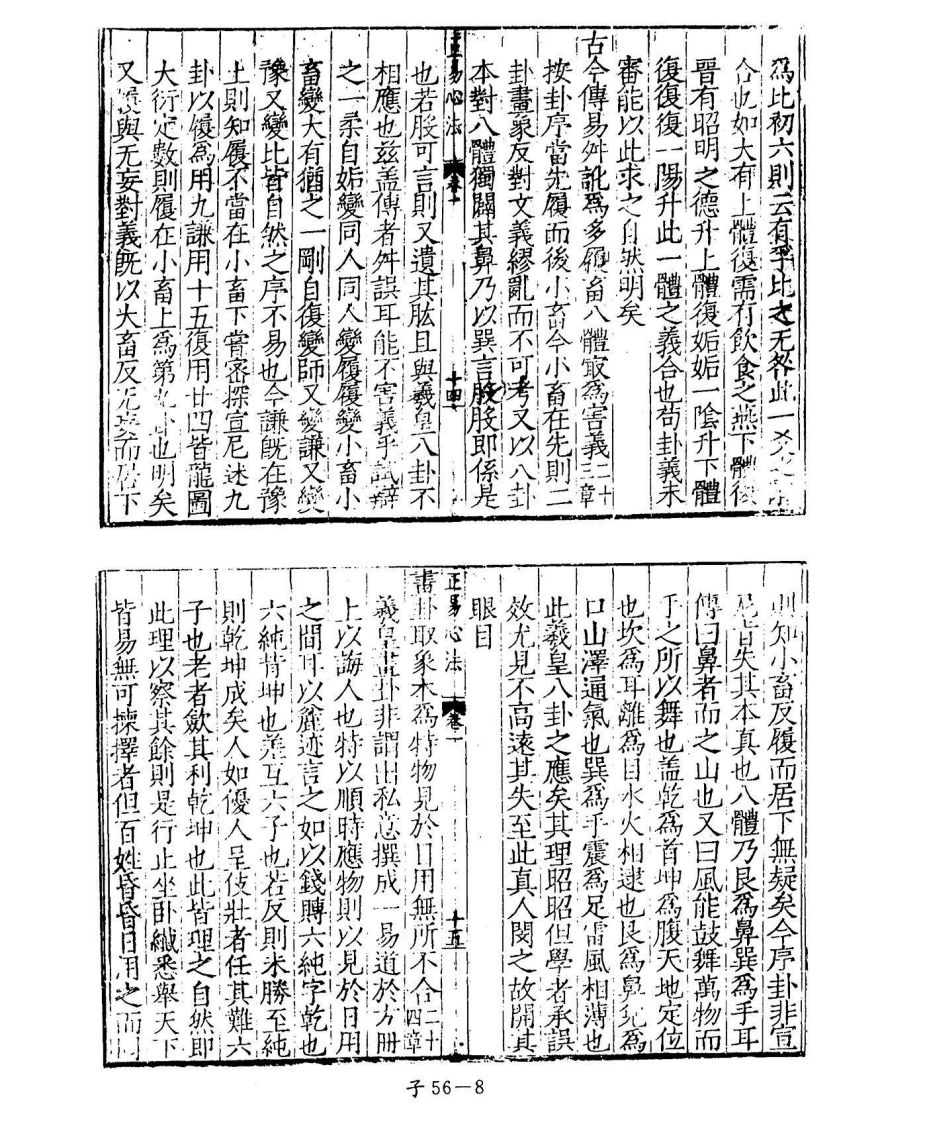 爲比初六則云有孚比之无咎此一爻之
合也如大有上體復需有飲食之燕下體復
晉有昭明之德升上體復姤姤一陰升下體
復復復一陽升此一體之義合也苟卦義未
審能以此求之自然明矣
古今傳易舛訛爲多履畜八體最爲害義二十三章
按卦序當先履而後小畜今小畜在先則二
卦畫象反對文義繆亂而不可考又以八卦
本對八體獨闕其鼻乃以巽言股股即係是
正易心法
卷一
十四
也若股可言則又遺其肱且與羲皇八卦不
相應也茲盖傳者舛誤耳能不害義乎試辯
之一柔自姤變同人同人變履履變小畜小
畜變大有猶之一剛自復變師師又變謙又變
豫又變比皆自然之序不易也今謙旣在豫
上則知履不當在小畜下嘗密探宣尼述九
卦以履爲用九謙用十五復用廿四皆龍圖
大衍定數則履在小畜上爲第九卦也明矣
又履與无妄對義旣以大畜反无妄而居下
則知小畜反履而居下無疑矣今序卦非宣
尼皆失其本真也八體乃艮爲鼻巽爲手耳
傳曰鼻者面之山也又曰風能鼓舞萬物而
手之所以舞也盖乾爲首坤爲腹天地定位
也坎爲耳離爲目水火相逮也艮爲鼻兌爲
口山澤通氣也巽爲手震爲足雷風相薄也
此羲皇八卦之應矣其理昭昭但學者承誤
效尤見不高遠其失至此真人閔之故開其
眼目
正易心法
卷一
十五
畫卦取象本爲特物見於日用無所不合二十四章
羲皇畫卦非謂出私意撰成一易道於方冊
上以誨人也特以順時應物則以見於日用
之間耳以麄迹言之如以錢賻六純字乾也
六純背坤也差互六子也若反則未勝至純
則乾坤成矣人如優人呈伎壯者任其難六
子也老者歛其利乾坤也此皆理之自然即
此理以察其餘則是行止坐卧纎悉舉天下
皆易無可揀擇者但百姓昏昏日用之而
子56－8